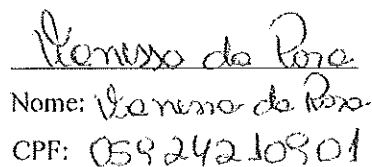 Vanessa da Rosa
Nome: Vanessa da Rosa
CPF: 05924210901